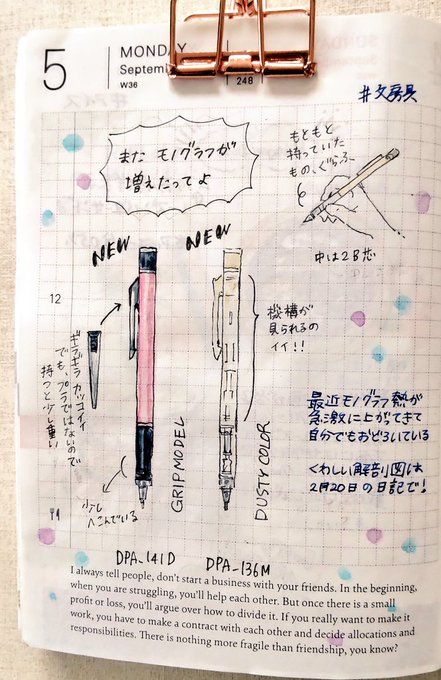 5
MONDAY
Septem
W36
248
#文房具
また モノグラフが
増えたってよ
もともと
持っていた
もの、ぐらふ
中は2B芯
NEW
NEW
12
機構が
見られるの
イイ!!
ギラギラ カッコイイ
でも、プラではないので
持つと少し重い
GRIP MODEL
DUSTY COLOR
最近モノグラフ熱が
急激に上がってきて
自分でもおどろいている
くわしい解剖図は
2月20日の日記で!
少し
へこんでいる
DPA-141D
DPA-136M
I always tell people, don't start a business with your friends. In the beginning,
when you are struggling, you'll help each other. But once there is a small
profit or loss, you'll argue over how to divide it. If you really want to make it
work, you have to make a contract with each other and decide allocations and
responsibilities. There is nothing more fragile than friendship, you know?